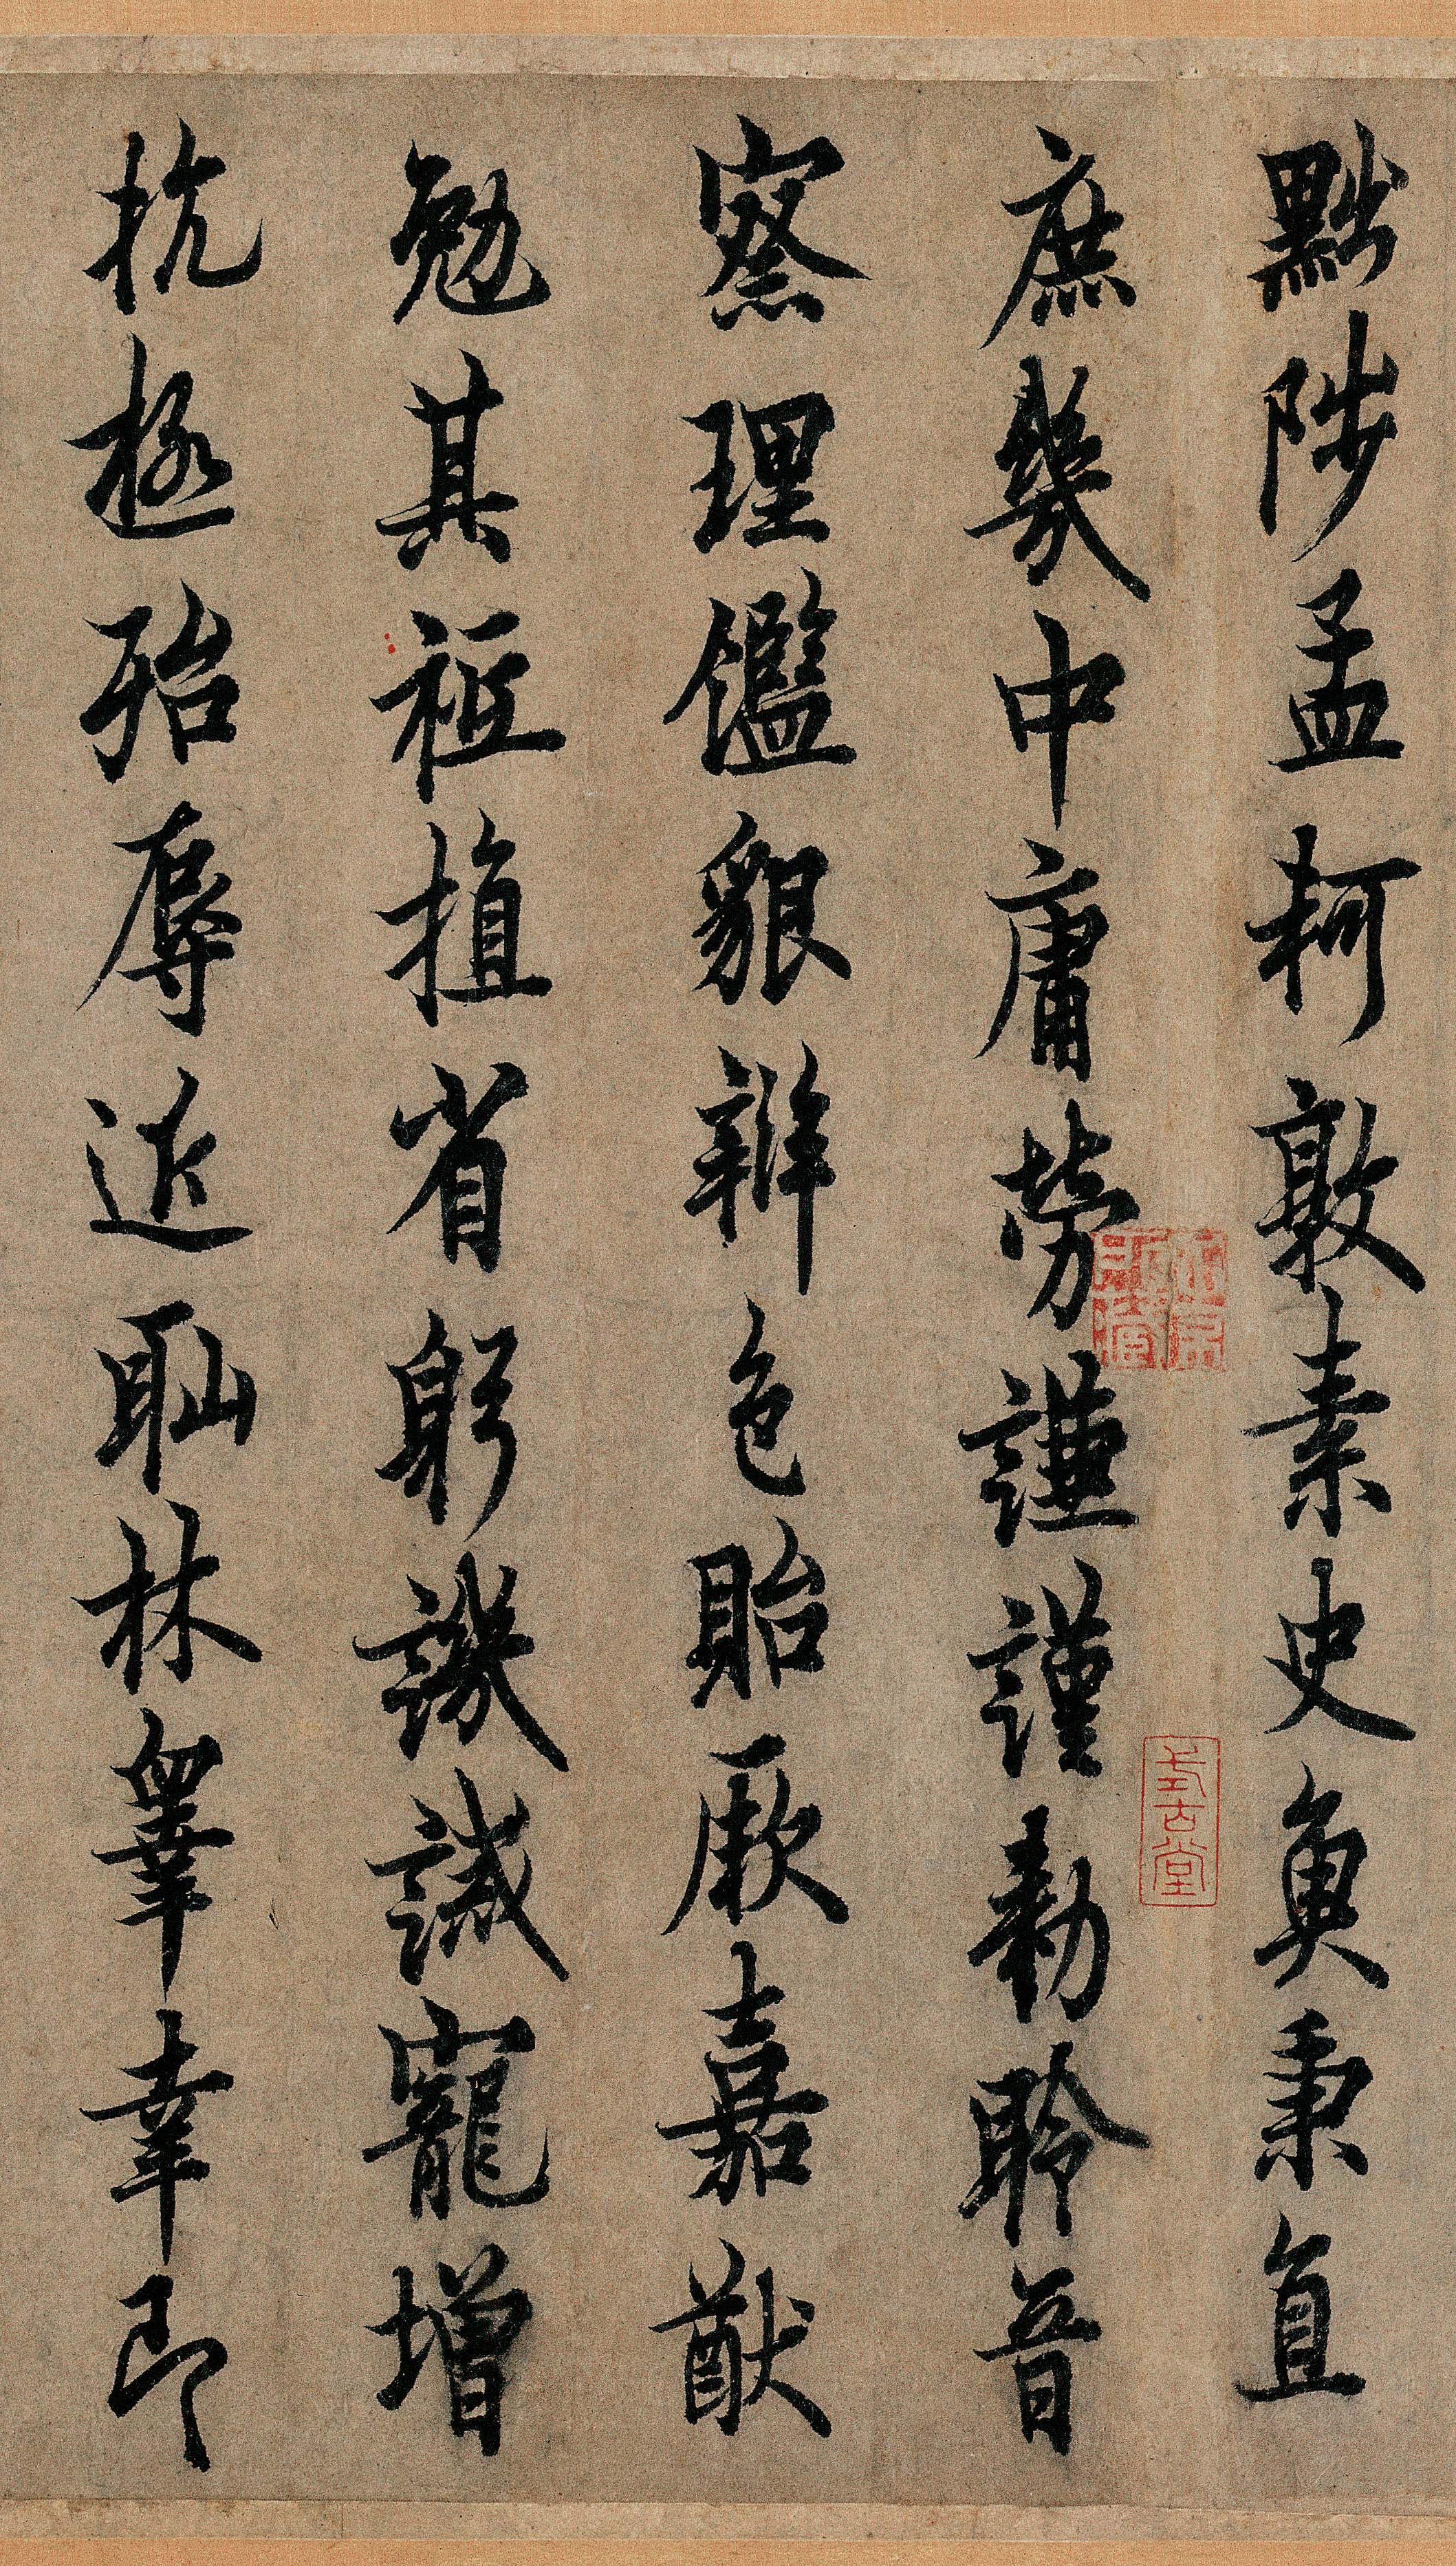 黜陟孟軻敦素史魚秉直
庶幾中庸勞謙謹勅聆音
察理鑑貌辯色貽厥嘉猷
勉其祗植省躬譏誡寵增
抗極殆辱近恥林睾幸即
式古堂